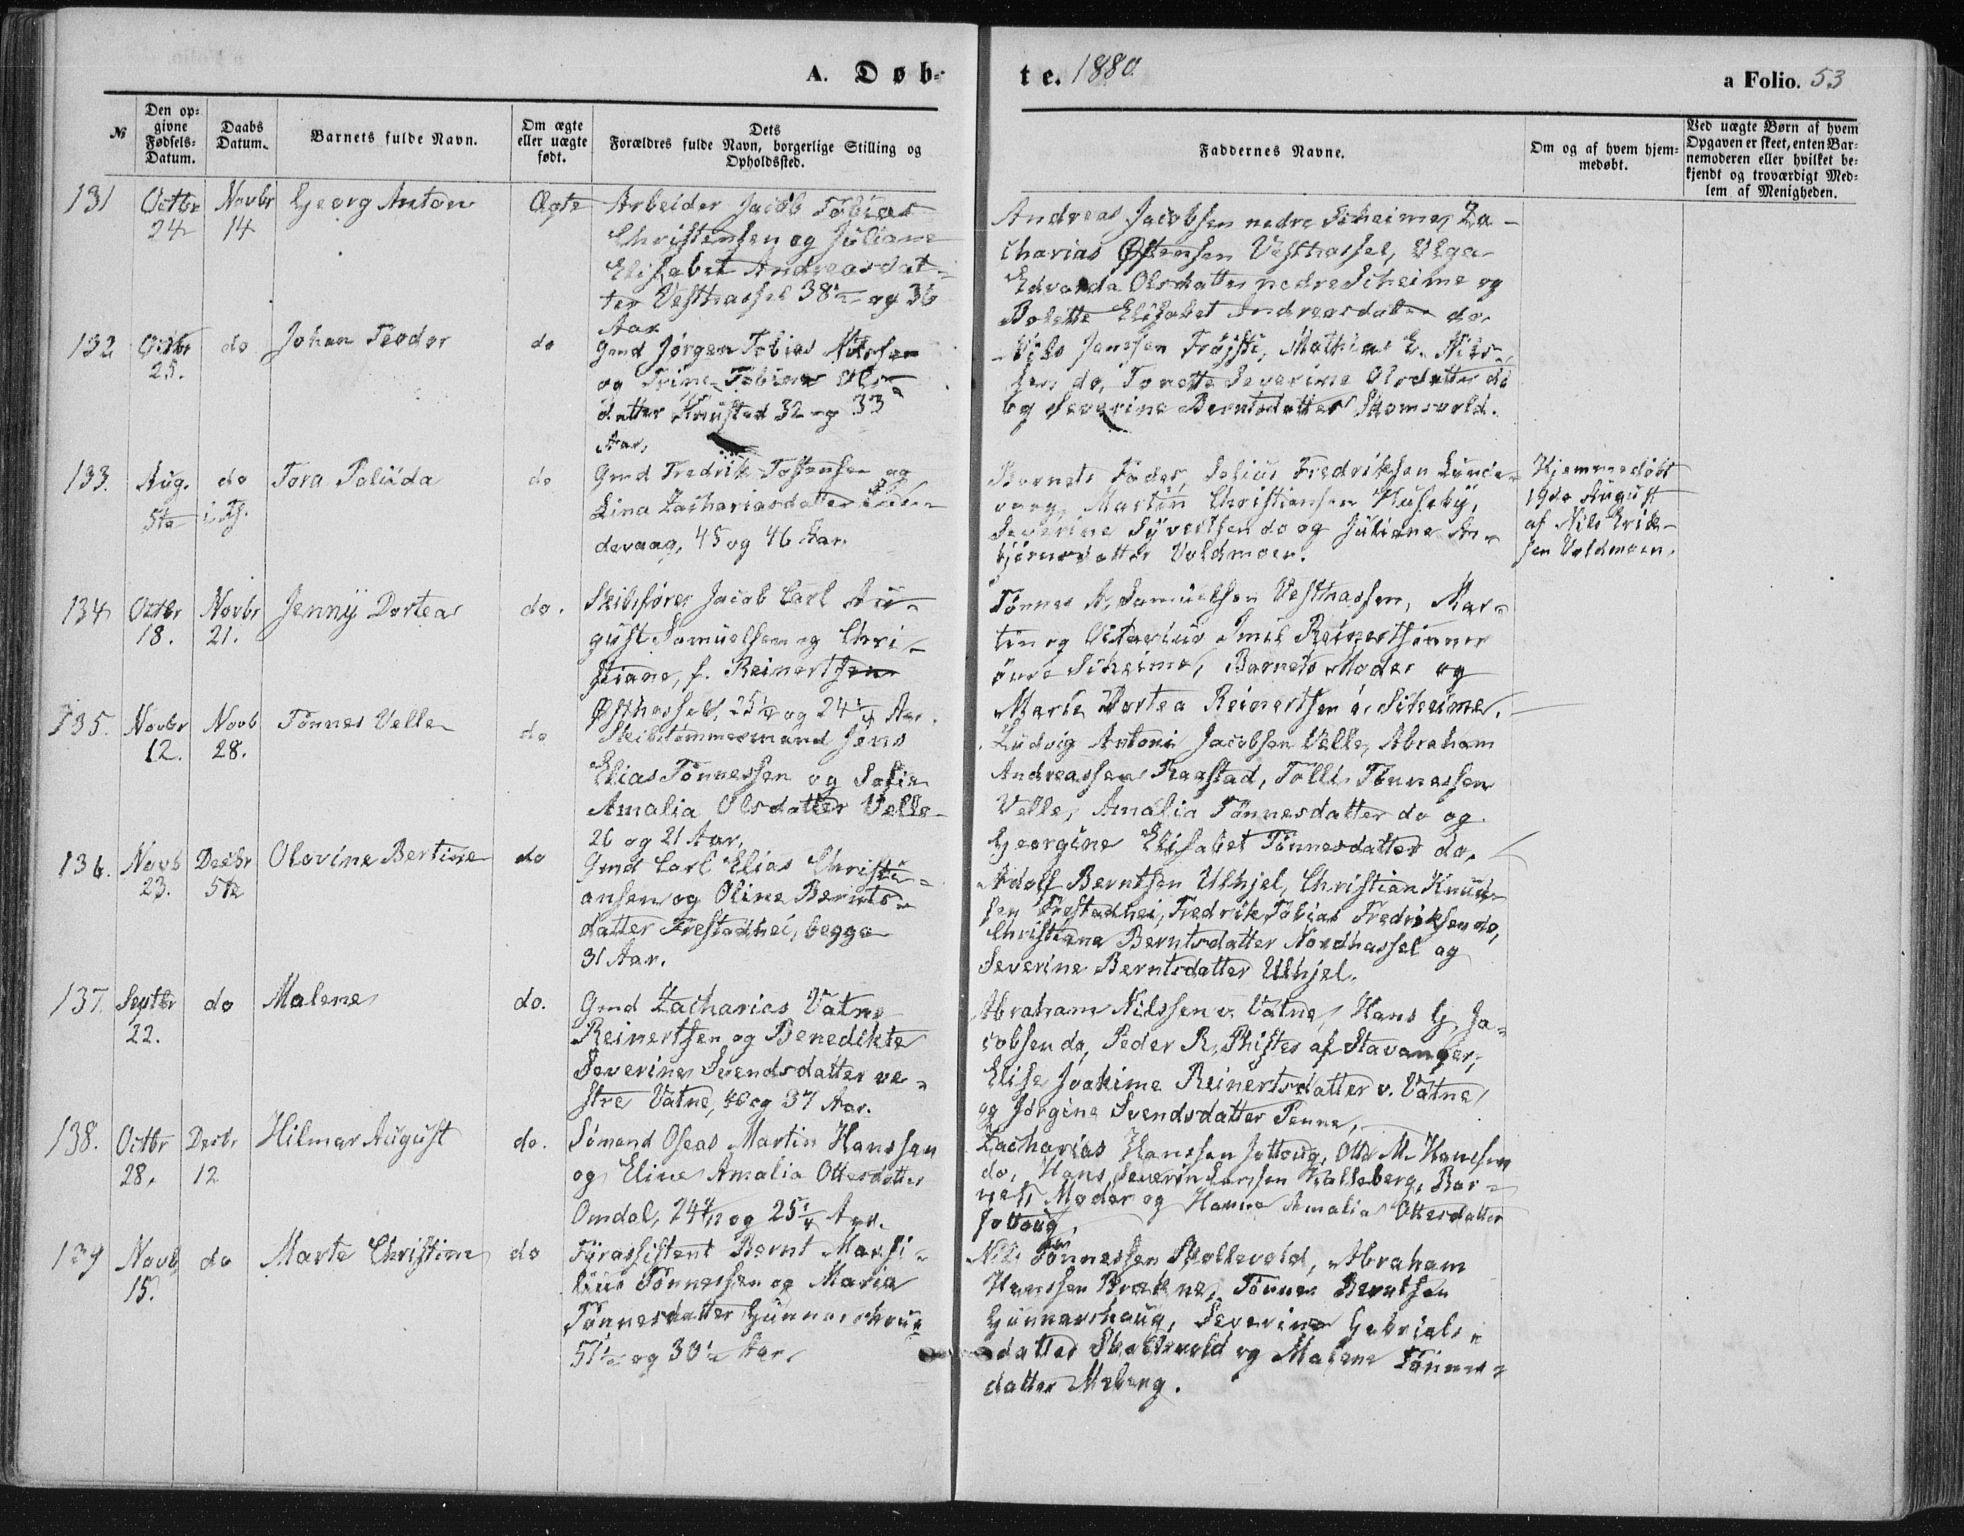 A. Døb-
te. 1880.
a Folio. 53
№
Den op-
givne
Fødsels-
Datum.
Daabs
Datum.
Barnets fulde Navn.
Om ægte
eller uægte
født.
Dets
Forældres fulde Navn, borgerlige Stilling og
Opholdssted.
Faddernes Navne.
Om og af hvem hjem-
medøbt.
Ved uægte Børn af hvem
Opgaven er skeet, enten Bar-
nemoderen eller hvilket be-
kjendt og troværdigt Med-
lem af Menigheden.
131
Octbr
24
Novbr
14
Georg Anton
Ægte
Arbeider Jacob Tobias
Christensen og Juliane
Elisabet Andreasdat-
ter Vesthassel 38½ og 36
Aar
Andreas Jacobsen nedre Skeime, Za-
charias Vesthassel, Olga
Edvarda Olsdatter nedre Skeime og
Bolette Elisabet Andreasdatter do.
132
Octbr
25.
do
Johan Teodor
do
Gmd Jørgen Tobias
og Trine Tobine Ols-
datter 32 og 33
Aar,
Nils Janssen Mathias E. Nils-
sen do, Tonette Severine Olsdatter do
og Severine Berntsdatter
133.
Aug.
5te
do
Tora Polida
do
Gmd Fredrik Tostensen og
Lina Zachariasdatter Lun-
devaag, 45 og 46 Aar.
Barnets Fader, Fredriksen Lunde-
vaag, Martin Christiansen Huseby,
Severine Syvertsen do og Juliane An-
bjørnsdatter Voldmoen.
Hjemmedøbt
19de August
af Nils Erik-
sen Voldmoen.
134
Octbr
18.
Novbr
21.
Jenny Dortea
do.
Skibsfører Jacob Carl Au-
gust Samuelsen og Chri-
stiane, f. Reinertsen
Østhassel, 25¼ og 24¼ Aar.
Tønnes A. Samuelsen Vesthassen, Mar-
tin og Emil Reinertsønner
øvre Skeime, Barnets Moder og
Marie Dortea Reinertsen ø. Skeime.
135.
Novbr
12.
Novb
28.
Tønnes Velle
do
Skibstømmermand Jens
Elias Tønnessen og Sofie
Amalia Olsdatter Velle
26 og 21 Aar.
Ludvig Antoni Jacobsen Velle, Abraham
Andreassen Tollis Tønnessen
Velle, Amalia Tønnesdatter do og
Georgine Elisabet Tønnesdatter do.
136.
Novb
23.
Decbr
5te
Olovine Bertine
do
Gmd Carl Elias Christi-
ansen og Oline Bernts-
datter Frestadhei, begge
31 Aar.
Adolf Berntsen Ulhjel, Christian Knud-
sen Frestadhei, Fredrik Tobias Fredriksen do,
Christiane Berntsdatter Nordhassel og
Severine Berntsdatter Ulhjel.
137.
Septbr
22.
do
Malene
do.
Gmd Zacharias Vatne
Reinertsen og Benedikte
Severine Svendsdatter ve-
stre Vatne, 40 og 37 Aar.
Abraham Nilssen v. Vatne, Hans G. Ja-
cobsen do, Peder R. af Stavanger,
Elise Joakime Reinertsdatter v. Vatne
og Jørgine Svendsdatter Penne,
138.
Octbr
28.
Decbr
12
Hilmar August
do.
Sømand Oseas Martin Hanssen
og Eline Amalia Ottesdatter
Omdal, 24 og 25¼ Aar.
Zacharias Hanssen Jøllaug, Otto M. Hanssen
do, Hans Severin Larssen Kalleberg, Bar-
nets Moder og Hanna Amalia Ottersdatter
Jøllaug.
139
Novb
15.
do
Marte Christine
do
Fyrassistent Bernt Marsi-
lius Tønnessen og Maria
Tønnesdatter Gunnarshaug
51½ og 30½ Aar.
Nils Tønnessen Skollevold, Abraham
Hanssen Brækne, Tønnes Berntsen
Gunnarshaug, Severine Gabriels-
datter Skollevold og Malene Tønnes-
datter Meberg.